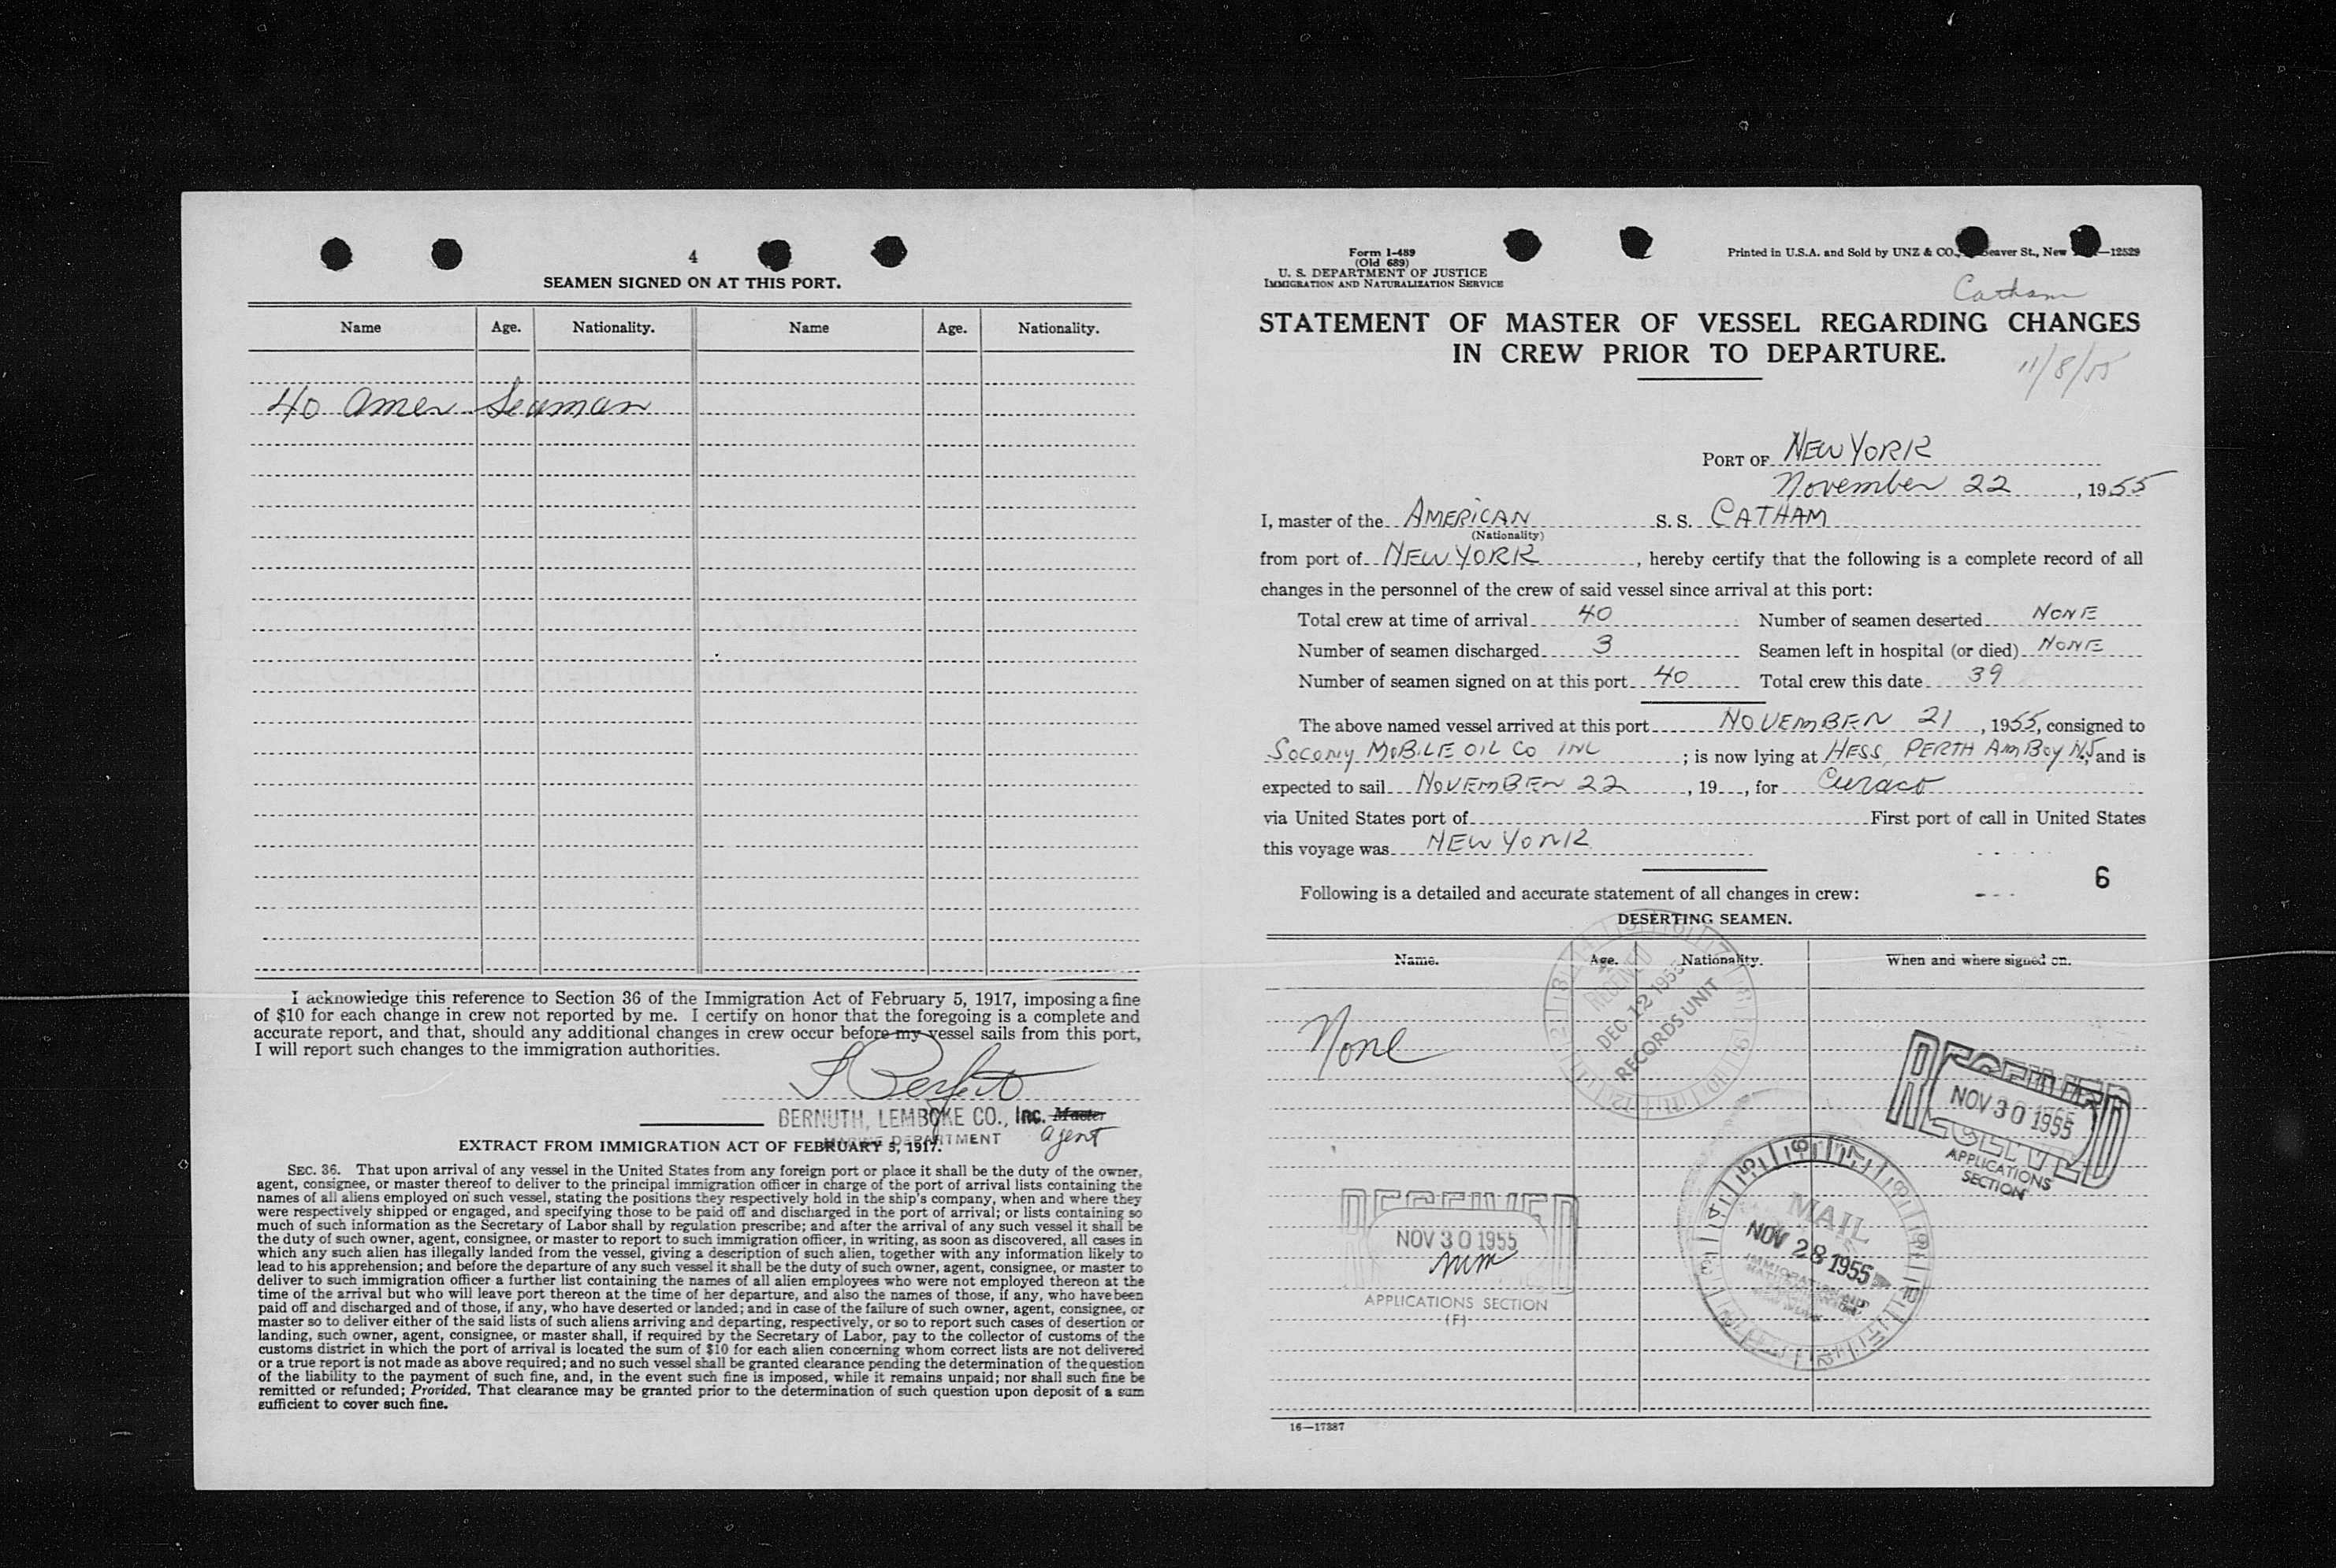 4
SEAMEN SIGNED ON AT THIS PORT.
Name Age. Nationality. Name Age. Nationality.
40 Amer Seaman
I acknowledge this reference to Section 36 of the Immigration Act of February 5, 1917, imposing a fine
of $10 for each change in crew not reported by me. I certify on honor that the foregoing is a complete and
accurate report, and that, should any additional changes in crew occur before my vessel sails from this port,
I will report such changes to the immigration authorities.
BERNUTH, LEMBCKE CO., Inc. Master
MARINE DEPARTMENT agent
EXTRACT FROM IMMIGRATION ACT OF FEBRUARY 5, 1917.
SEC. 36. That upon arrival of any vessel in the United States from any foreign port or place it shall be the duty of the owner,
agent, consignee, or master thereof to deliver to the principal immigration officer in charge of the port of arrival lists containing the
names of all aliens employed on such vessel, stating the positions they respectively hold in the ship's company, when and where they
were respectively shipped or engaged, and specifying those to be paid off and discharged in the port of arrival; or lists containing so
much of such information as the Secretary of Labor shall by regulation prescribe; and after the arrival of any such vessel it shall be
the duty of such owner, agent, consignee, or master to report to such immigration officer, in writing, as soon as discovered, all cases in
which any such alien has illegally landed from the vessel, giving a description of such alien, together with any information likely to
lead to his apprehension; and before the departure of any such vessel it shall be the duty of such owner, agent, consignee, or master to
deliver to such immigration officer a further list containing the names of all alien employees who were not employed thereon at the
time of the arrival but who will leave port thereon at the time of her departure, and also the names of those, if any, who have been
paid off and discharged and of those, if any, who have deserted or landed; and in case of the failure of such owner, agent, consignee, or
master so to deliver either of the said lists of such aliens arriving and departing, respectively, or so to report such cases of desertion or
landing, such owner, agent, consignee, or master shall, if required by the Secretary of Labor, pay to the collector of customs of the
customs district in which the port of arrival is located the sum of $10 for each alien concerning whom correct lists are not delivered
or a true report is not made as above required; and no such vessel shall be granted clearance pending the determination of the question
of the liability to the payment of such fine, and, in the event such fine is imposed, while it remains unpaid; nor shall such fine be
remitted or refunded; Provided, That clearance may be granted prior to the determination of such question upon deposit of a sum
sufficient to cover such fine.
Form I-489
(Old 689)
U. S. DEPARTMENT OF JUSTICE
IMMIGRATION AND NATURALIZATION SERVICE
Printed in U.S.A. and Sold by UNZ & CO., Beaver St., New —12529
Catham
STATEMENT OF MASTER OF VESSEL REGARDING CHANGES
IN CREW PRIOR TO DEPARTURE.
11/8/55
PORT OF NEW YORK
November 22, 1955
I, master of the AMERICAN S. S. CATHAM
(Nationality)
from port of NEW YORK, hereby certify that the following is a complete record of all
changes in the personnel of the crew of said vessel since arrival at this port:
Total crew at time of arrival 40 Number of seamen deserted NONE
Number of seamen discharged 3 Seamen left in hospital (or died) NONE
Number of seamen signed on at this port 40 Total crew this date 39
The above named vessel arrived at this port NOVEMBER 21, 1955, consigned to
SOCONY MOBILE OIL CO INC; is now lying at HESS, PERTH AMBOY N.J., and is
expected to sail NOVEMBER 22, 19, for Curaco
via United States port of First port of call in United States
this voyage was NEW YORK
6
Following is a detailed and accurate statement of all changes in crew:
DESERTING SEAMEN.
Name. Age. Nationality. When and where signed on.
None
RECEIVED
DEC 12 1955
RECORDS UNIT
RECEIVED
NOV 30 1955
APPLICATIONS
SECTION
RECEIVED
NOV 30 1955
APPLICATIONS SECTION
(F)
MAIL
NOV 28 1955
16—17387